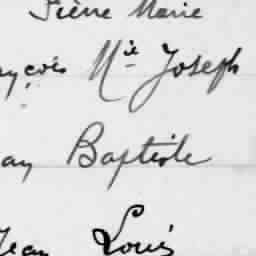 Pierre Marie
nçois Nie Joseph
an Baptiste
Jean Louis